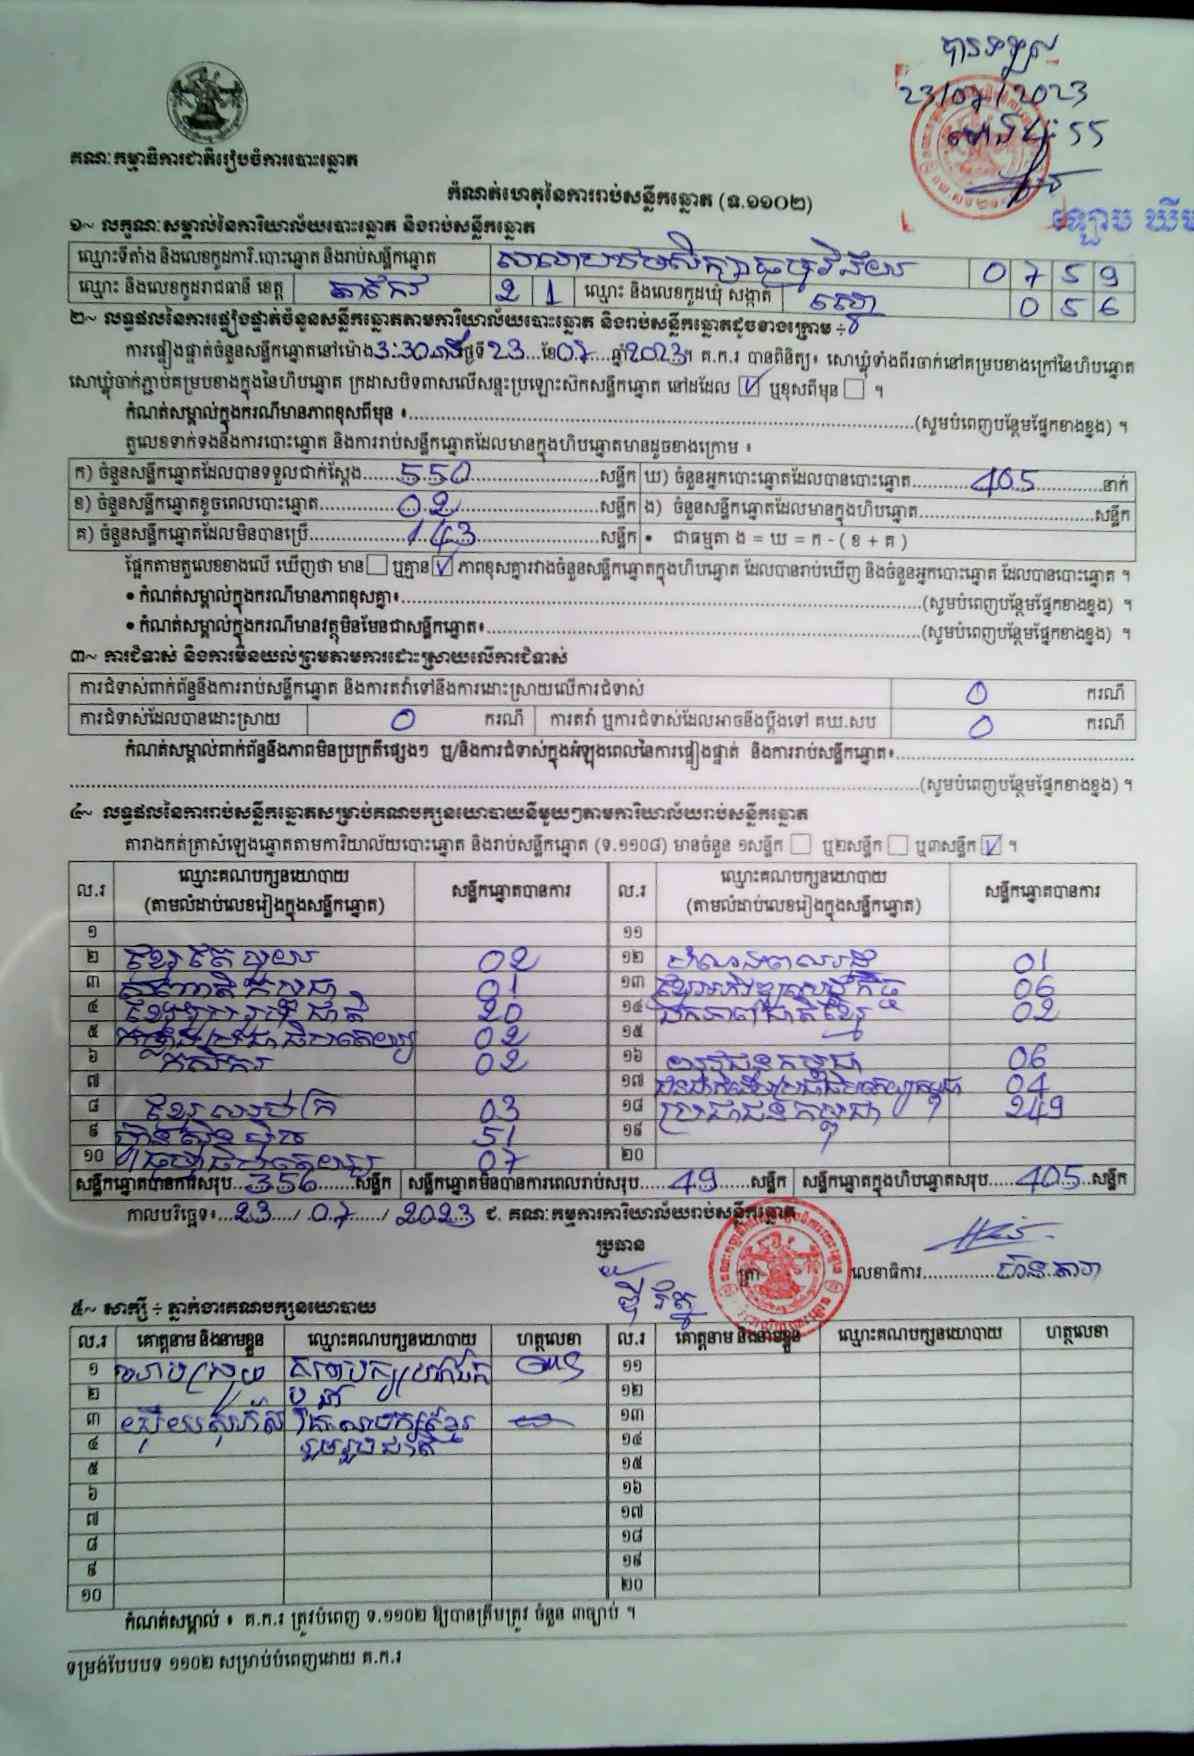 បានទទួល
23/07/2023
ម៉ោង ៤:៥៥
គណៈកម្មាធិការជាតិរៀបចំការបោះឆ្នោត
កំណត់ហេតុនៃការរាប់សន្លឹកឆ្នោត (ទ.១១០២)
១~ លក្ខណៈសម្គាល់នៃការិយាល័យបោះឆ្នោត និងរាប់សន្លឹកឆ្នោត
ឈ្មោះទីតាំង និងលេខកូដការិ.បោះឆ្នោត និងរាប់សន្លឹកឆ្នោត 0 7 5 9
ឈ្មោះ និងលេខកូដរាជធានី ខេត្ត តាកែវ 2 1 ឈ្មោះ និងលេខកូដឃុំ សង្កាត់ 0 5 6
២~ លទ្ធផលនៃការផ្ទៀងផ្ទាត់ចំនួនសន្លឹកឆ្នោតតាមការិយាល័យបោះឆ្នោត និងរាប់សន្លឹកឆ្នោតដូចខាងក្រោម ÷
ការផ្ទៀងផ្ទាត់ចំនួនសន្លឹកឆ្នោតនៅម៉ោង 3:30 នាទី ថ្ងៃទី 23 ខែ 07 ឆ្នាំ 2023។ គ.ក.រ បានពិនិត្យ៖ សោឃ្លុំទាំងពីរចាក់នៅគម្របខាងក្រៅនៃហិបឆ្នោត
សោឃ្លុំចាក់ភ្ជាប់គម្របខាងក្នុងនៃហិបឆ្នោត ក្រដាសបិទពាសលើសន្ទះប្រឡោះស៊កសន្លឹកឆ្នោត នៅដដែល ☑ ឬខុសពីមុន ☐ ។
កំណត់សម្គាល់ក្នុងករណីមានភាពខុសពីមុន ៖ (សូមបំពេញបន្ថែមផ្នែកខាងខ្នង) ។
តួលេខទាក់ទងនឹងការបោះឆ្នោត និងការរាប់សន្លឹកឆ្នោតដែលមានក្នុងហិបឆ្នោតមានដូចខាងក្រោម ៖
ក) ចំនួនសន្លឹកឆ្នោតដែលបានទទួលជាក់ស្តែង 550 សន្លឹក ឃ) ចំនួនអ្នកបោះឆ្នោតដែលបានបោះឆ្នោត 405 នាក់
ខ) ចំនួនសន្លឹកឆ្នោតខូចពេលបោះឆ្នោត 02 សន្លឹក ង) ចំនួនសន្លឹកឆ្នោតដែលមានក្នុងហិបឆ្នោត សន្លឹក
គ) ចំនួនសន្លឹកឆ្នោតដែលមិនបានប្រើ 143 សន្លឹក • ជាធម្មតា ង = ឃ = ក - ( ខ + គ )
ផ្អែកតាមតួលេខខាងលើ ឃើញថា មាន ☐ ឬគ្មាន ☑ ភាពខុសគ្នារវាងចំនួនសន្លឹកឆ្នោតក្នុងហិបឆ្នោត ដែលបានរាប់ឃើញ និងចំនួនអ្នកបោះឆ្នោត ដែលបានបោះឆ្នោត ។
• កំណត់សម្គាល់ក្នុងករណីមានភាពខុសគ្នា៖ (សូមបំពេញបន្ថែមផ្នែកខាងខ្នង) ។
• កំណត់សម្គាល់ក្នុងករណីមានវត្ថុមិនមែនជាសន្លឹកឆ្នោត៖ (សូមបំពេញបន្ថែមផ្នែកខាងខ្នង) ។
៣~ ការជំទាស់ និងការមិនយល់ព្រមតាមការដោះស្រាយលើការជំទាស់
ការជំទាស់ពាក់ព័ន្ធនឹងការរាប់សន្លឹកឆ្នោត និងការតវ៉ាទៅនឹងការដោះស្រាយលើការជំទាស់ 0 ករណី
ការជំទាស់ដែលបានដោះស្រាយ 0 ករណី ការតវ៉ា ឬការជំទាស់ដែលអាចនឹងប្តឹងទៅ គឃ.សប 0 ករណី
កំណត់សម្គាល់ពាក់ព័ន្ធនឹងភាពមិនប្រក្រតីផ្សេងៗ ឬ/និងការជំទាស់ក្នុងអំឡុងពេលនៃការផ្ទៀងផ្ទាត់ និងការរាប់សន្លឹកឆ្នោត៖
(សូមបំពេញបន្ថែមផ្នែកខាងខ្នង) ។
៤~ លទ្ធផលនៃការរាប់សន្លឹកឆ្នោតសម្រាប់គណបក្សនយោបាយនីមួយៗតាមការិយាល័យរាប់សន្លឹកឆ្នោត
តារាងកត់ត្រាសំឡេងឆ្នោតតាមការិយាល័យបោះឆ្នោត និងរាប់សន្លឹកឆ្នោត (ទ.១១០៨) មានចំនួន ១សន្លឹក ☐ ឬ២សន្លឹក ☐ ឬ៣សន្លឹក ☑ ។
ល.រ ឈ្មោះគណបក្សនយោបាយ (តាមលំដាប់លេខរៀងក្នុងសន្លឹកឆ្នោត) សន្លឹកឆ្នោតបានការ ល.រ ឈ្មោះគណបក្សនយោបាយ (តាមលំដាប់លេខរៀងក្នុងសន្លឹកឆ្នោត) សន្លឹកឆ្នោតបានការ
១ ១១
២ ខ្មែរតែមួយ 02 ១២ 01
៣ 01 ១៣ ខ្មែរអភិវឌ្ឍសេដ្ឋកិច្ច 06
៤ ខ្មែររួបរួមជាតិ 20 ១៤ ឯកភាពជាតិខ្មែរ 02
៥ កម្លាំងប្រជាធិបតេយ្យ 02 ១៥
៦ កសិករ 02 ១៦ យុវជនកម្ពុជា 06
៧ ១៧ 04
៨ ខ្មែរឈប់ក្រ 03 ១៨ ប្រជាជនកម្ពុជា 249
៩ ហ៊្វុនស៊ិនប៉ិច 51 ១៩
១០ ធម្មាធិបតេយ្យ 07 ២០
សន្លឹកឆ្នោតបានការសរុប 356 សន្លឹក សន្លឹកឆ្នោតមិនបានការពេលរាប់សរុប 49 សន្លឹក សន្លឹកឆ្នោតក្នុងហិបឆ្នោតសរុប 405 សន្លឹក
កាលបរិច្ឆេទ៖ 23 / 07 / 2023 ជ. គណៈកម្មការការិយាល័យរាប់សន្លឹកឆ្នោត
ប្រធាន
ត្រា លេខាធិការ
៥~ សាក្សី ÷ ភ្នាក់ងារគណបក្សនយោបាយ
ល.រ គោត្តនាម និងនាមខ្លួន ឈ្មោះគណបក្សនយោបាយ ហត្ថលេខា ល.រ គោត្តនាម និងនាមខ្លួន ឈ្មោះគណបក្សនយោបាយ ហត្ថលេខា
១ ១១
២ ១២
៣ គណបក្សខ្មែរ ១៣
៤ រួបរួមជាតិ ១៤
៥ ១៥
៦ ១៦
៧ ១៧
៨ ១៨
៩ ១៩
១០ ២០
កំណត់សម្គាល់ ៖ គ.ក.រ ត្រូវបំពេញ ទ.១១០២ ឱ្យបានត្រឹមត្រូវ ចំនួន ៣ច្បាប់ ។
ទម្រង់បែបបទ ១១០២ សម្រាប់បំពេញដោយ គ.ក.រ